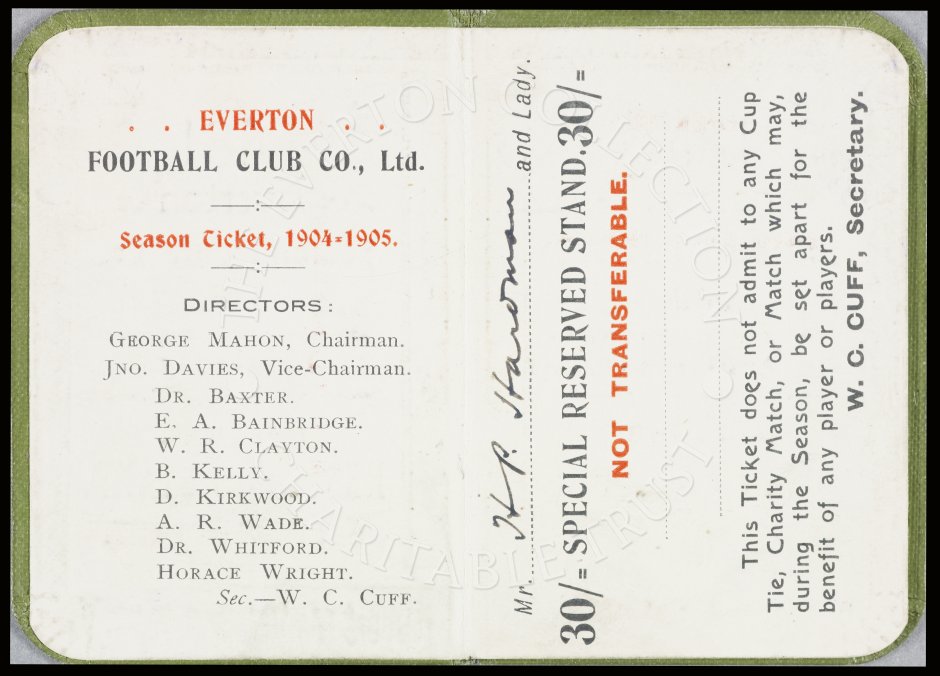 . . EVERTON . .
FOOTBALL CLUB CO., Ltd.
Season Ticket, 1904=1905.
DIRECTORS:
GEORGE MAHON, Chairman.
JNO. DAVIES, Vice-Chairman.
DR. BAXTER.
E. A. BAINBRIDGE.
W. R. CLAYTON.
B. KELLY.
D. KIRKWOOD.
A. R. WADE.
DR. WHITFORD.
HORACE WRIGHT.
Sec.—W. C. CUFF.
Mr. H. P. Hardman and Lady.
30/= SPECIAL RESERVED STAND. 30/=
NOT TRANSFERABLE.
This Ticket does not admit to any Cup
Tie, Charity Match, or Match which may,
during the Season, be set apart for the
benefit of any player or players.
W. C. CUFF, Secretary.
THE EVERTON COLLECTION
CHARITABLE TRUST